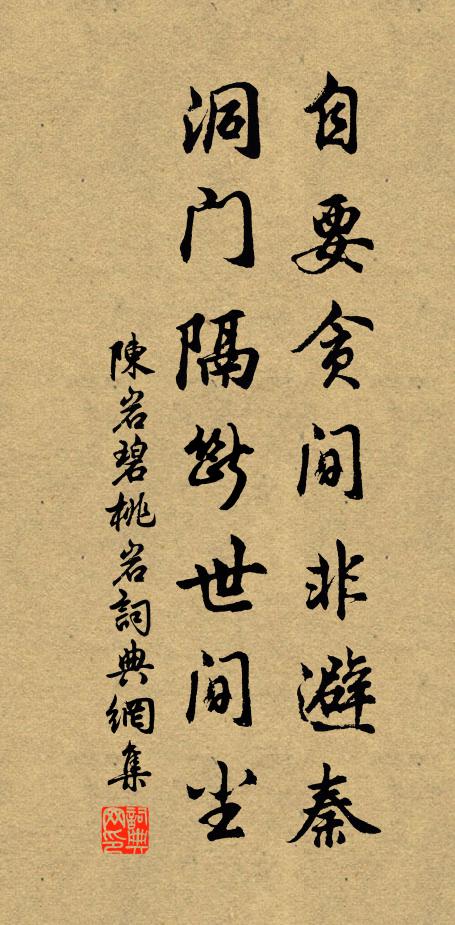 自要贪间非避秦
洞门隔断世间尘
陳岩碧桃岩詞典網集
詞典网印